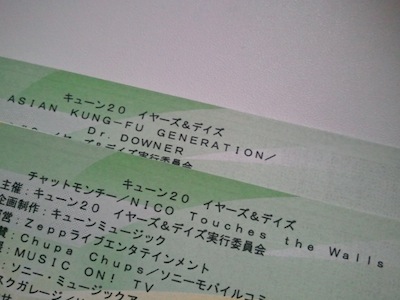 キューン20 イヤーズ&デイズ
ASIAN KUNG-FU GENERATION/
Dr. DOWNER
イヤーズ&デイズ実行委員会
キューン20 イヤーズ&デイズ
チャットモンチー/NICO Touches the Walls
主催:キューン20 イヤーズ&デイズ実行委員会
企画制作:キューンミュージック
Zeppライブエンタテインメント
Chupa Chups/ソニーモバイルコミ
MUSIC ON! TV
ソニー・ミュージックア